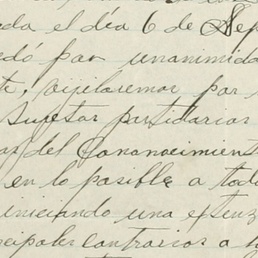 da el día 6 de Sep
edó por unanimida
te, vijilaremos por
sujetos partidarios
as del Cononocimient
en lo posible a todo
iniciando una estenz
cipales contrarios a